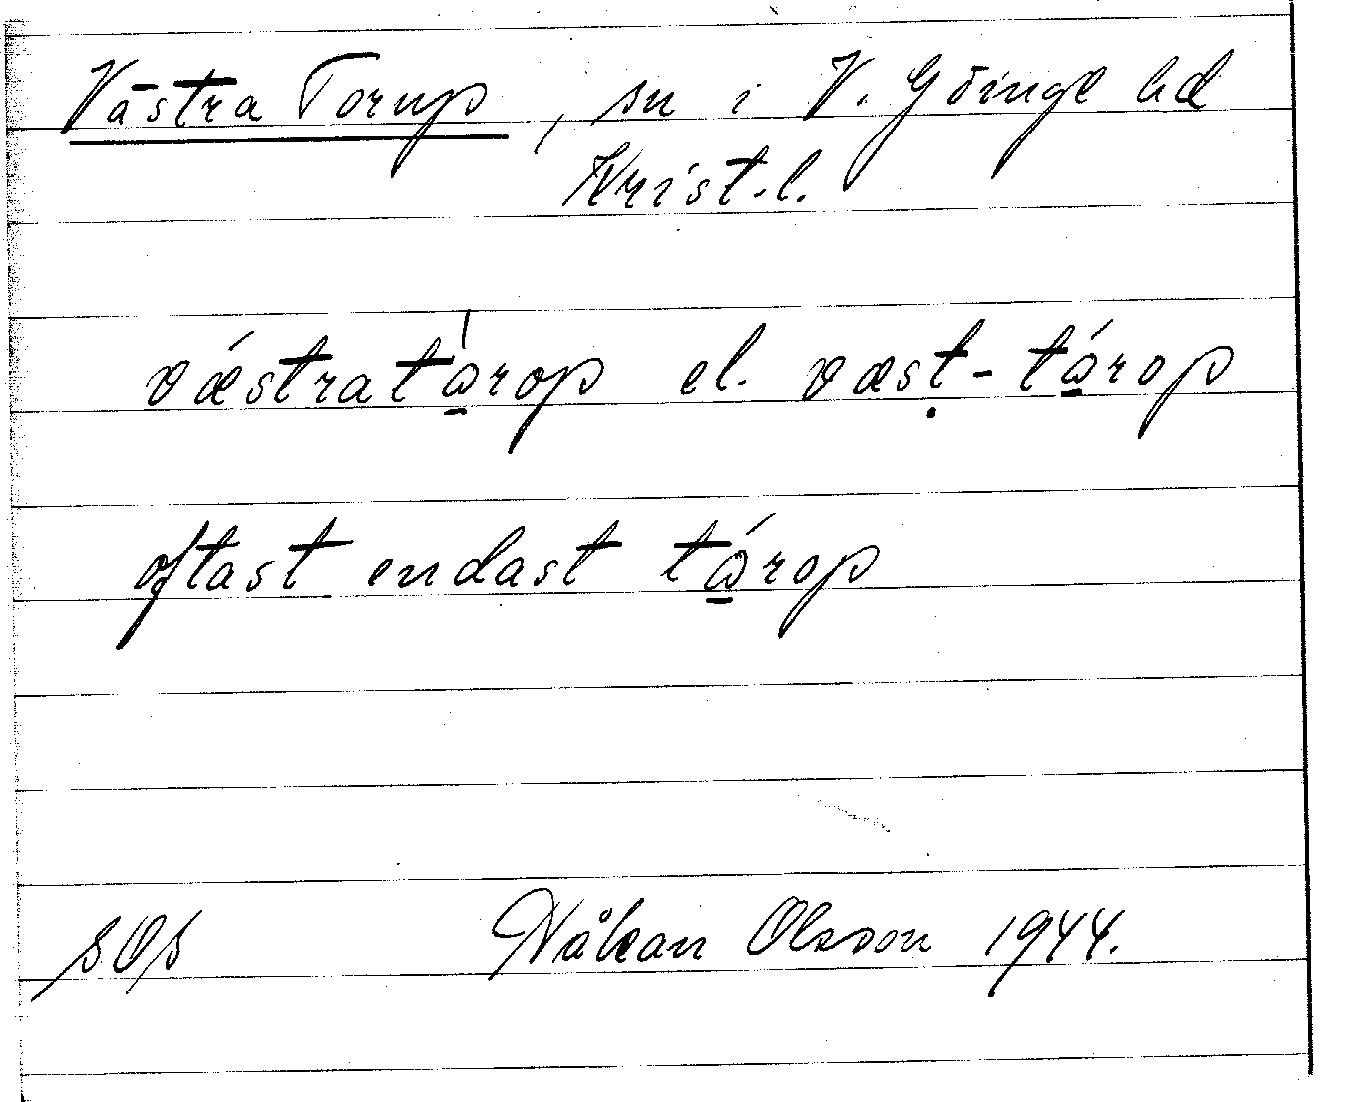 Västra Torup, sn i V. Göinge hd
Krist.l.
vǽstratǻ̱rop el. væsṭ-tǻ̱rop
oftast endast tǻ̱rop
sOs Håkan Olsson 1944.